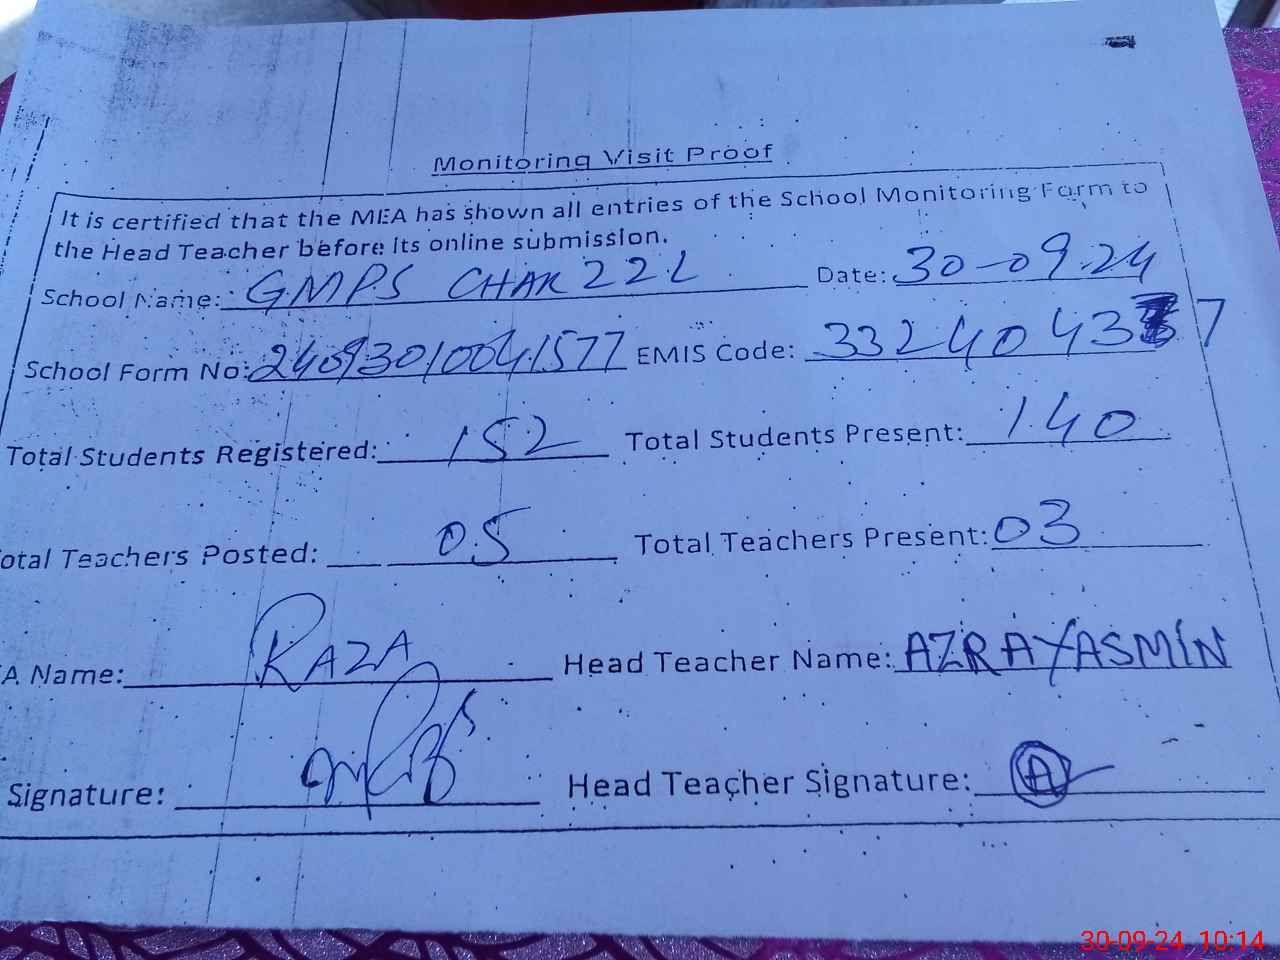 Monitoring Visit Proof
It is certified that the MEA has shown all entries of the School Monitoring Form to
the Head Teacher before its online submission.
School Name: GMPS CHAK 22 L Date: 30-09-24
School Form No: 24093010041577 EMIS Code: 33240437
Total Students Registered: 152 Total Students Present: 140
otal Teachers Posted: 05 Total Teachers Present: 03
A Name: RAZA Head Teacher Name: AZRA YASMIN
Signature: Head Teacher Signature: A
30-09-24 10:14